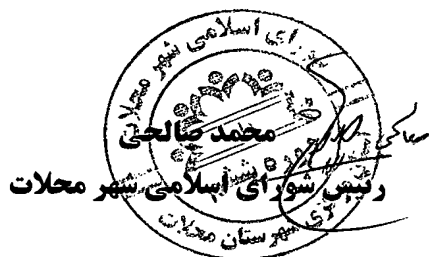 شورای اسلامی شهر محلات
محمد صالحی
رئیس شورای اسلامی شهر محلات
شهرستان محلات